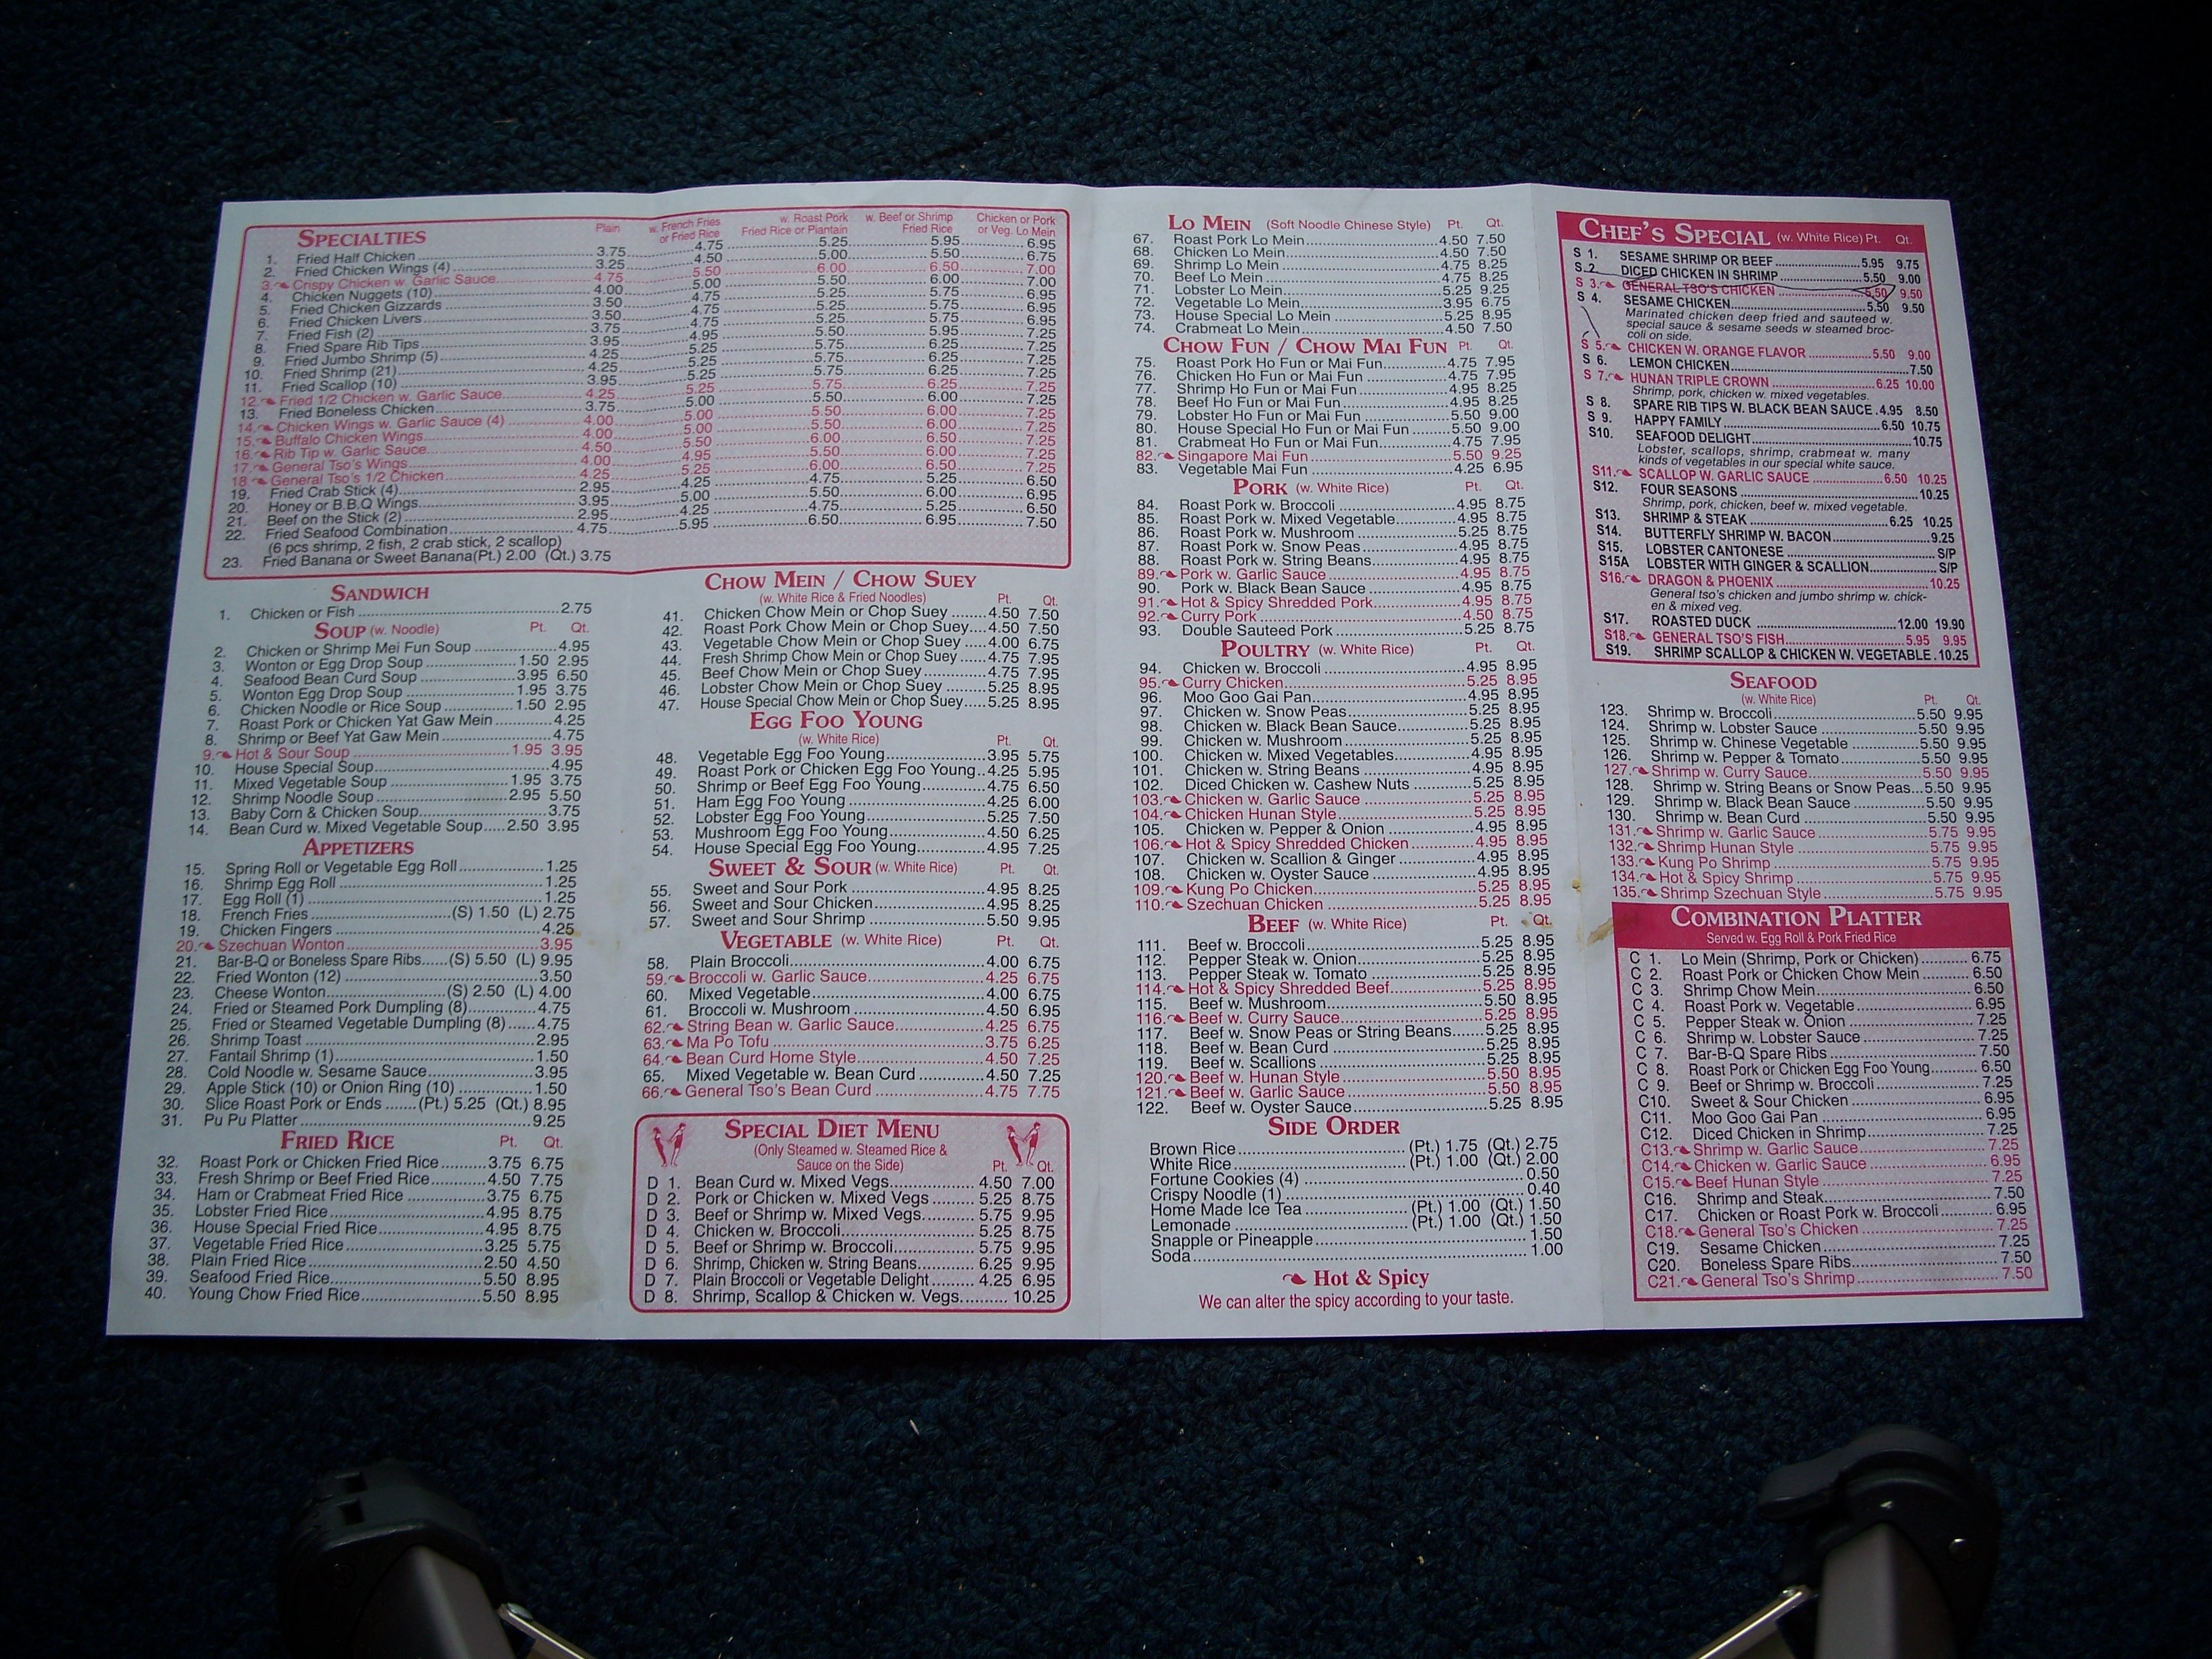 SPECIALTIES
Plain
w. French Fries or Fried Rice
w. Roast Pork Fried Rice or Plantain
w. Beef or Shrimp Fried Rice
Chicken or Pork or Veg. Lo Mein
1. Fried Half Chicken 3.75 4.75 5.25 5.95 6.95
2. Fried Chicken Wings (4) 3.25 4.50 5.00 5.50 6.75
3. Crispy Chicken w. Garlic Sauce 4.75 5.50 6.00 6.50 7.00
4. Chicken Nuggets (10) 4.00 5.00 5.50 6.00 7.00
5. Fried Chicken Gizzards 3.50 4.75 5.25 5.75 6.95
6. Fried Chicken Livers 3.50 4.75 5.25 5.75 6.95
7. Fried Fish (2) 3.75 4.75 5.25 5.75 6.95
8. Fried Spare Rib Tips 3.95 4.95 5.50 5.95 7.25
9. Fried Jumbo Shrimp (5) 4.25 5.25 5.75 6.25 7.25
10. Fried Shrimp (21) 4.25 5.25 5.75 6.25 7.25
11. Fried Scallop (10) 3.95 5.25 5.75 6.25 7.25
12. Fried 1/2 Chicken w. Garlic Sauce 4.25 5.25 5.75 6.25 7.25
13. Fried Boneless Chicken 3.75 5.00 5.50 6.00 7.25
14. Chicken Wings w. Garlic Sauce (4) 4.00 5.00 5.50 6.00 7.25
15. Buffalo Chicken Wings 4.00 5.00 5.50 6.00 7.25
16. Rib Tip w. Garlic Sauce 4.50 5.50 6.00 6.50 7.25
17. General Tso's Wings 4.00 4.95 5.50 6.00 7.25
18. General Tso's 1/2 Chicken 4.25 5.25 6.00 6.50 7.25
19. Fried Crab Stick (4) 2.95 4.25 4.75 5.25 6.50
20. Honey or B.B.Q Wings 3.95 5.00 5.50 6.00 6.95
21. Beef on the Stick (2) 2.95 4.25 4.75 5.25 6.50
22. Fried Seafood Combination 4.75 5.95 6.50 6.95 7.50
(6 pcs shrimp, 2 fish, 2 crab stick, 2 scallop)
23. Fried Banana or Sweet Banana (Pt.) 2.00 (Qt.) 3.75
SANDWICH
1. Chicken or Fish 2.75
SOUP (w. Noodle) Pt. Qt.
2. Chicken or Shrimp Mei Fun Soup 4.95
3. Wonton or Egg Drop Soup 1.50 2.95
4. Seafood Bean Curd Soup 3.95 6.50
5. Wonton Egg Drop Soup 1.95 3.75
6. Chicken Noodle or Rice Soup 1.50 2.95
7. Roast Pork or Chicken Yat Gaw Mein 4.25
8. Shrimp or Beef Yat Gaw Mein 4.75
9. Hot & Sour Soup 1.95 3.95
10. House Special Soup 4.95
11. Mixed Vegetable Soup 1.95 3.75
12. Shrimp Noodle Soup 2.95 5.50
13. Baby Corn & Chicken Soup 3.75
14. Bean Curd w. Mixed Vegetable Soup 2.50 3.95
APPETIZERS
15. Spring Roll or Vegetable Egg Roll 1.25
16. Shrimp Egg Roll 1.25
17. Egg Roll (1) 1.25
18. French Fries (S) 1.50 (L) 2.75
19. Chicken Fingers 4.25
20. Szechuan Wonton 3.95
21. Bar-B-Q or Boneless Spare Ribs (S) 5.50 (L) 9.95
22. Fried Wonton (12) 3.50
23. Cheese Wonton (S) 2.50 (L) 4.00
24. Fried or Steamed Pork Dumpling (8) 4.75
25. Fried or Steamed Vegetable Dumpling (8) 4.75
26. Shrimp Toast 2.95
27. Fantail Shrimp (1) 1.50
28. Cold Noodle w. Sesame Sauce 3.95
29. Apple Stick (10) or Onion Ring (10) 1.50
30. Slice Roast Pork or Ends (Pt.) 5.25 (Qt.) 8.95
31. Pu Pu Platter 9.25
FRIED RICE Pt. Qt.
32. Roast Pork or Chicken Fried Rice 3.75 6.75
33. Fresh Shrimp or Beef Fried Rice 4.50 7.75
34. Ham or Crabmeat Fried Rice 3.75 6.75
35. Lobster Fried Rice 4.95 8.75
36. House Special Fried Rice 4.95 8.75
37. Vegetable Fried Rice 3.25 5.75
38. Plain Fried Rice 2.50 4.50
39. Seafood Fried Rice 5.50 8.95
40. Young Chow Fried Rice 5.50 8.95
CHOW MEIN / CHOW SUEY
(w. White Rice & Fried Noodles) Pt. Qt.
41. Chicken Chow Mein or Chop Suey 4.50 7.50
42. Roast Pork Chow Mein or Chop Suey 4.50 7.50
43. Vegetable Chow Mein or Chop Suey 4.00 6.75
44. Fresh Shrimp Chow Mein or Chop Suey 4.75 7.95
45. Beef Chow Mein or Chop Suey 4.75 7.95
46. Lobster Chow Mein or Chop Suey 5.25 8.95
47. House Special Chow Mein or Chop Suey 5.25 8.95
EGG FOO YOUNG
(w. White Rice) Pt. Qt.
48. Vegetable Egg Foo Young 3.95 5.75
49. Roast Pork or Chicken Egg Foo Young 4.25 5.95
50. Shrimp or Beef Egg Foo Young 4.75 6.50
51. Ham Egg Foo Young 4.25 6.00
52. Lobster Egg Foo Young 5.25 7.50
53. Mushroom Egg Foo Young 4.50 6.25
54. House Special Egg Foo Young 4.95 7.25
SWEET & SOUR (w. White Rice) Pt. Qt.
55. Sweet and Sour Pork 4.95 8.25
56. Sweet and Sour Chicken 4.95 8.25
57. Sweet and Sour Shrimp 5.50 9.95
VEGETABLE (w. White Rice) Pt. Qt.
58. Plain Broccoli 4.00 6.75
59. Broccoli w. Garlic Sauce 4.25 6.75
60. Mixed Vegetable 4.00 6.75
61. Broccoli w. Mushroom 4.50 6.95
62. String Bean w. Garlic Sauce 4.25 6.75
63. Ma Po Tofu 3.75 6.25
64. Bean Curd Home Style 4.50 7.25
65. Mixed Vegetable w. Bean Curd 4.50 7.25
66. General Tso's Bean Curd 4.75 7.75
SPECIAL DIET MENU
(Only Steamed w. Steamed Rice &
Sauce on the Side) Pt. Qt.
D 1. Bean Curd w. Mixed Vegs 4.50 7.00
D 2. Pork or Chicken w. Mixed Vegs 5.25 8.75
D 3. Beef or Shrimp w. Mixed Vegs. 5.75 9.95
D 4. Chicken w. Broccoli 5.25 8.75
D 5. Beef or Shrimp w. Broccoli 5.75 9.95
D 6. Shrimp, Chicken w. String Beans 6.25 9.95
D 7. Plain Broccoli or Vegetable Delight 4.25 6.95
D 8. Shrimp, Scallop & Chicken w. Vegs. 10.25
LO MEIN (Soft Noodle Chinese Style) Pt. Qt.
67. Roast Pork Lo Mein 4.50 7.50
68. Chicken Lo Mein 4.50 7.50
69. Shrimp Lo Mein 4.75 8.25
70. Beef Lo Mein 4.75 8.25
71. Lobster Lo Mein 5.25 9.25
72. Vegetable Lo Mein 3.95 6.75
73. House Special Lo Mein 5.25 8.95
74. Crabmeat Lo Mein 4.50 7.50
CHOW FUN / CHOW MAI FUN Pt. Qt.
75. Roast Pork Ho Fun or Mai Fun 4.75 7.95
76. Chicken Ho Fun or Mai Fun 4.75 7.95
77. Shrimp Ho Fun or Mai Fun 4.95 8.25
78. Beef Ho Fun or Mai Fun 4.95 8.25
79. Lobster Ho Fun or Mai Fun 5.50 9.00
80. House Special Ho Fun or Mai Fun 5.50 9.00
81. Crabmeat Ho Fun or Mai Fun 4.75 7.95
82. Singapore Mai Fun 5.50 9.25
83. Vegetable Mai Fun 4.25 6.95
PORK (w. White Rice) Pt. Qt.
84. Roast Pork w. Broccoli 4.95 8.75
85. Roast Pork w. Mixed Vegetable 4.95 8.75
86. Roast Pork w. Mushroom 5.25 8.75
87. Roast Pork w. Snow Peas 4.95 8.75
88. Roast Pork w. String Beans 4.95 8.75
89. Pork w. Garlic Sauce 4.95 8.75
90. Pork w. Black Bean Sauce 4.95 8.75
91. Hot & Spicy Shredded Pork 4.95 8.75
92. Curry Pork 4.50 8.75
93. Double Sauteed Pork 5.25 8.75
POULTRY (w. White Rice) Pt. Qt.
94. Chicken w. Broccoli 4.95 8.95
95. Curry Chicken 5.25 8.95
96. Moo Goo Gai Pan 4.95 8.95
97. Chicken w. Snow Peas 5.25 8.95
98. Chicken w. Black Bean Sauce 5.25 8.95
99. Chicken w. Mushroom 5.25 8.95
100. Chicken w. Mixed Vegetables 4.95 8.95
101. Chicken w. String Beans 4.95 8.95
102. Diced Chicken w. Cashew Nuts 5.25 8.95
103. Chicken w. Garlic Sauce 5.25 8.95
104. Chicken Hunan Style 5.25 8.95
105. Chicken w. Pepper & Onion 4.95 8.95
106. Hot & Spicy Shredded Chicken 4.95 8.95
107. Chicken w. Scallion & Ginger 4.95 8.95
108. Chicken w. Oyster Sauce 4.95 8.95
109. Kung Po Chicken 5.25 8.95
110. Szechuan Chicken 5.25 8.95
BEEF (w. White Rice) Pt. Qt.
111. Beef w. Broccoli 5.25 8.95
112. Pepper Steak w. Onion 5.25 8.95
113. Pepper Steak w. Tomato 5.25 8.95
114. Hot & Spicy Shredded Beef 5.25 8.95
115. Beef w. Mushroom 5.50 8.95
116. Beef w. Curry Sauce 5.25 8.95
117. Beef w. Snow Peas or String Beans 5.25 8.95
118. Beef w. Bean Curd 5.25 8.95
119. Beef w. Scallions 5.25 8.95
120. Beef w. Hunan Style 5.50 8.95
121. Beef w. Garlic Sauce 5.50 8.95
122. Beef w. Oyster Sauce 5.25 8.95
SIDE ORDER
Brown Rice (Pt.) 1.75 (Qt.) 2.75
White Rice (Pt.) 1.00 (Qt.) 2.00
Fortune Cookies (4) 0.50
Crispy Noodle (1) 0.40
Home Made Ice Tea (Pt.) 1.00 (Qt.) 1.50
Lemonade (Pt.) 1.00 (Qt.) 1.50
Snapple or Pineapple 1.50
Soda 1.00
Hot & Spicy
We can alter the spicy according to your taste.
CHEF'S SPECIAL (w. White Rice) Pt. Qt.
S 1. SESAME SHRIMP OR BEEF 5.95 9.75
S 2. DICED CHICKEN IN SHRIMP 5.50 9.00
S 3. GENERAL TSO'S CHICKEN 5.50 9.50
S 4. SESAME CHICKEN 5.50 9.50
Marinated chicken deep fried and sauteed w.
special sauce & sesame seeds w steamed broc-
coli on side.
S 5. CHICKEN W. ORANGE FLAVOR 5.50 9.00
S 6. LEMON CHICKEN 7.50
S 7. HUNAN TRIPLE CROWN 6.25 10.00
Shrimp, pork, chicken w. mixed vegetables.
S 8. SPARE RIB TIPS W. BLACK BEAN SAUCE 4.95 8.50
S 9. HAPPY FAMILY 6.50 10.75
S10. SEAFOOD DELIGHT 10.75
Lobster, scallops, shrimp, crabmeat w. many
kinds of vegetables in our special white sauce.
S11. SCALLOP W. GARLIC SAUCE 6.50 10.25
S12. FOUR SEASONS 10.25
Shrimp, pork, chicken, beef w. mixed vegetable.
S13. SHRIMP & STEAK 6.25 10.25
S14. BUTTERFLY SHRIMP W. BACON 9.25
S15. LOBSTER CANTONESE S/P
S15A LOBSTER WITH GINGER & SCALLION S/P
S16. DRAGON & PHOENIX 10.25
General tso's chicken and jumbo shrimp w. chick-
en & mixed veg.
S17. ROASTED DUCK 12.00 19.90
S18. GENERAL TSO'S FISH 5.95 9.95
S19. SHRIMP SCALLOP & CHICKEN W. VEGETABLE 10.25
SEAFOOD
(w. White Rice) Pt. Qt.
123. Shrimp w. Broccoli 5.50 9.95
124. Shrimp w. Lobster Sauce 5.50 9.95
125. Shrimp w. Chinese Vegetable 5.50 9.95
126. Shrimp w. Pepper & Tomato 5.50 9.95
127. Shrimp w. Curry Sauce 5.50 9.95
128. Shrimp w. String Beans or Snow Peas 5.50 9.95
129. Shrimp w. Black Bean Sauce 5.50 9.95
130. Shrimp w. Bean Curd 5.50 9.95
131. Shrimp w. Garlic Sauce 5.75 9.95
132. Shrimp Hunan Style 5.75 9.95
133. Kung Po Shrimp 5.75 9.95
134. Hot & Spicy Shrimp 5.75 9.95
135. Shrimp Szechuan Style 5.75 9.95
COMBINATION PLATTER
Served w. Egg Roll & Pork Fried Rice
C 1. Lo Mein (Shrimp, Pork or Chicken) 6.75
C 2. Roast Pork or Chicken Chow Mein 6.50
C 3. Shrimp Chow Mein 6.50
C 4. Roast Pork w. Vegetable 6.95
C 5. Pepper Steak w. Onion 7.25
C 6. Shrimp w. Lobster Sauce 7.25
C 7. Bar-B-Q Spare Ribs 7.50
C 8. Roast Pork or Chicken Egg Foo Young 6.50
C 9. Beef or Shrimp w. Broccoli 7.25
C10. Sweet & Sour Chicken 6.95
C11. Moo Goo Gai Pan 6.95
C12. Diced Chicken in Shrimp 7.25
C13. Shrimp w. Garlic Sauce 7.25
C14. Chicken w. Garlic Sauce 6.95
C15. Beef Hunan Style 7.25
C16. Shrimp and Steak 7.50
C17. Chicken or Roast Pork w. Broccoli 6.95
C18. General Tso's Chicken 7.25
C19. Sesame Chicken 7.25
C20. Boneless Spare Ribs 7.50
C21. General Tso's Shrimp 7.50